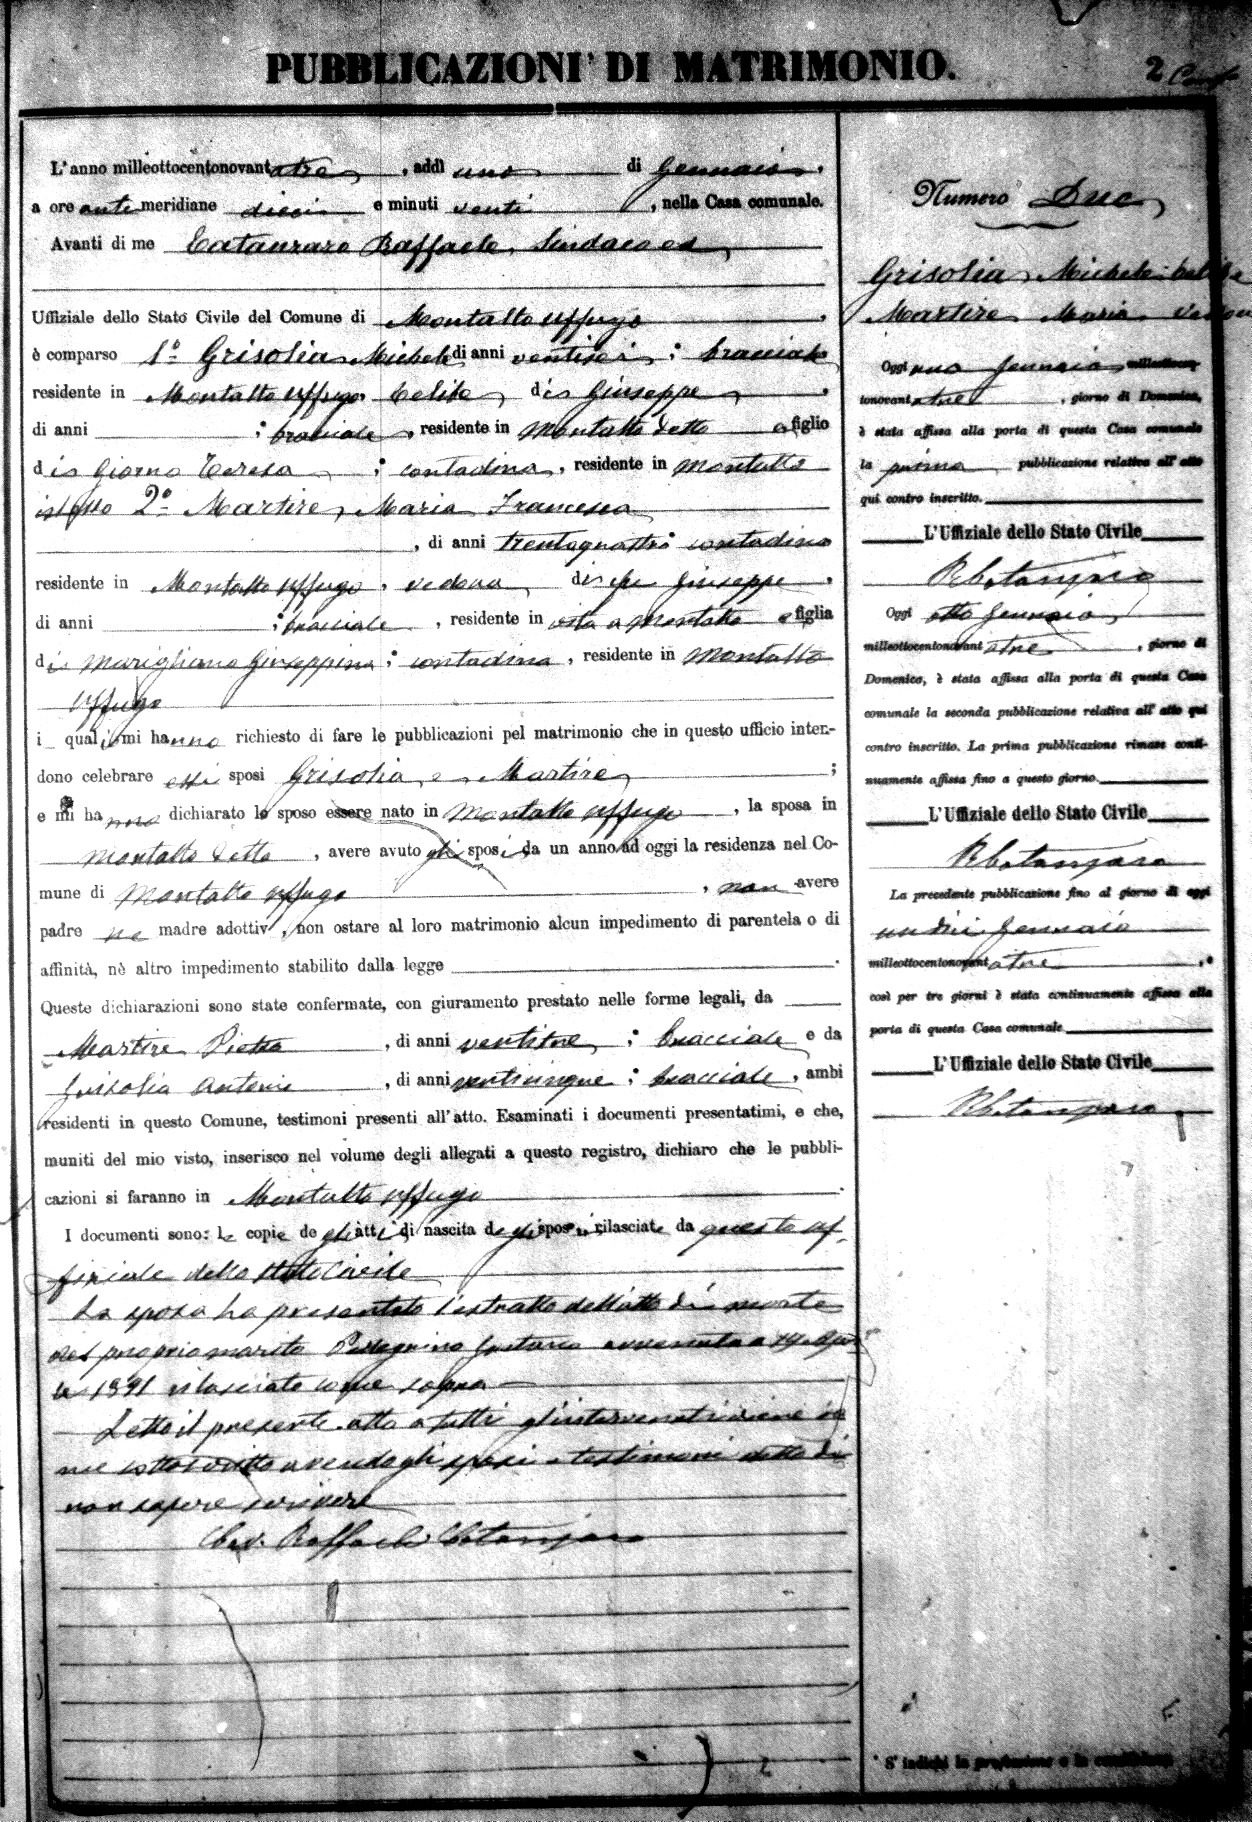 PUBBLICAZIONI DI MATRIMONIO.
2
L'anno milleottocentonovantatre, addì uno di Gennaio,
a ore antemeridiane dieci e minuti venti, nella Casa comunale.
Avanti di me Catanzaro Raffaele, Sindaco ed
Uffiziale dello Stato Civile del Comune di Montalto Uffugo
è comparso 1º Grisolia Michele di anni ventisei; bracciale
residente in Montalto Uffugo, celibe, di Giuseppe,
di anni ; bracciale, residente in Montalto detto e figlio
di Giorno Teresa; contadina, residente in Montalto
2º Martire, Maria Francesca
, di anni trentaquattro contadina
residente in Montalto Uffugo, vedova, di fu Giuseppe,
di anni ; bracciale, residente in vita a Montalto e figlia
di Marigliano Giuseppina; contadina, residente in Montalto
Uffugo
i quali mi hanno richiesto di fare le pubblicazioni pel matrimonio che in questo ufficio inten-
dono celebrare essi sposi Grisolia e Martire;
e mi hanno dichiarato lo sposo essere nato in Montalto Uffugo, la sposa in
Montalto detto, avere avuto gli sposi da un anno ad oggi la residenza nel Co-
mune di Montalto Uffugo, non avere
padre ne madre adottiv, non ostare al loro matrimonio alcun impedimento di parentela o di
affinità, nè altro impedimento stabilito dalla legge.
Queste dichiarazioni sono state confermate, con giuramento prestato nelle forme legali, da
Martire Pietro, di anni ventitre; bracciale e da
Grisolia Antonio, di anni venticinque; bracciale, ambi
residenti in questo Comune, testimoni presenti all'atto. Esaminati i documenti presentatimi, e che,
muniti del mio visto, inserisco nel volume degli allegati a questo registro, dichiaro che le pubbli-
cazioni si faranno in Montalto Uffugo.
I documenti sono: le copie degli atti di nascita degli sposi, rilasciate da questo uf-
fiziale dello Stato Civile
La sposa ha presentato l'estratto dell'atto di morte
del proprio marito avvenuta a
le 1891 rilasciato come sopra
Letto il presente atto a tutti gl'intervenuti viene da
me sottoscritto avendo gli sposi e testimoni detto di
non sapere scrivere
Cav. Raffaele Catanzaro
Numero Due
Grisolia Michele celibe
Martire Maria vedova
Oggi uno Gennaio milleottocen-
tonovantatre, giorno di Domenica,
è stata affissa alla porta di questa Casa comunale
la prima pubblicazione relativa all'atto
qui contro inscritto.
L'Uffiziale dello Stato Civile
R Catanzaro
Oggi otto Gennaio
milleottocentonovantatre, giorno di
Domenica, è stata affissa alla porta di questa Casa
comunale la seconda pubblicazione relativa all'atto qui
contro inscritto. La prima pubblicazione rimase conti-
nuamente affissa fino a questo giorno.
L'Uffiziale dello Stato Civile
R Catanzaro
La precedente pubblicazione fino al giorno di oggi
undici Gennaio
milleottocentonovantatre, e
così per tre giorni è stata continuamente affissa alla
porta di questa Casa comunale.
L'Uffiziale dello Stato Civile
R Catanzaro
* S'indichi la professione o la condizione